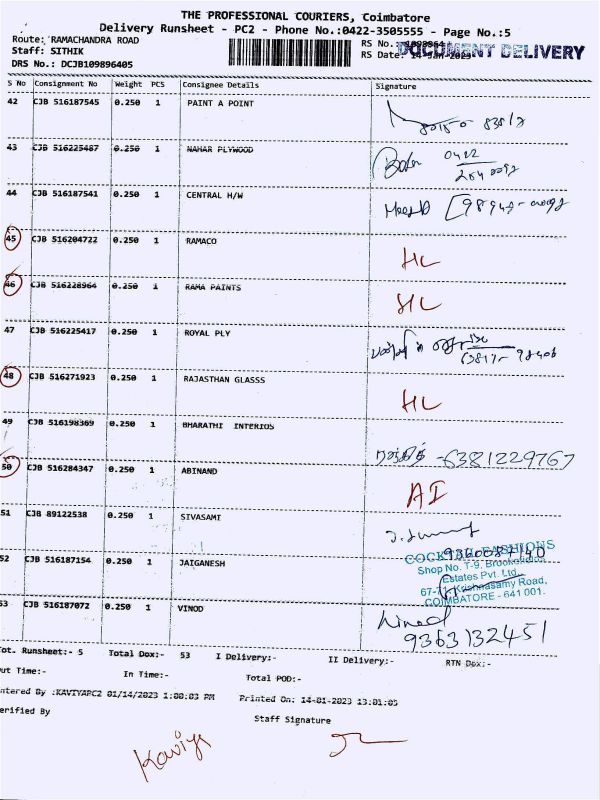 THE PROFESSIONAL COURIERS, Coimbatore
Delivery Runsheet - PC2 - Phone No.:0422-3505555 - Page No.:5
Route: RAMACHANDRA ROAD
Staff: SITHIK
DRS No.: DCJB109896405
RS No.:
RS Date: 14-Jan-2023
DOCUMENT DELIVERY
S No Consignment No Weight PCS Consignee Details Signature
42 CJB 516187545 0.250 1 PAINT A POINT
43 CJB 516225487 0.250 1 NAHAR PLYWOOD 0422
44 CJB 516187541 0.250 1 CENTRAL H/W
45 CJB 516204722 0.250 1 RAMACO HL
46 CJB 516228964 0.250 1 RAMA PAINTS HL
47 CJB 516225417 0.250 1 ROYAL PLY
48 CJB 516271923 0.250 1 RAJASTHAN GLASSS HL
49 CJB 516198369 0.250 1 BHARATHI INTERIOS
ரஞ்சித் -6381229767
50 CJB 516284347 0.250 1 ABINAND AI
51 CJB 89122538 0.250 1 SIVASAMI
52 CJB 516187154 0.250 1 JAIGANESH
COCKTAIL FASHIONS
Shop No. T-9, Brookefields
Estates Pvt. Ltd.,
67-71, Krishnasamy Road,
COIMBATORE - 641 001.
53 CJB 516187072 0.250 1 VINOD Vinod
9363132451
Tot. Runsheet:- 5 Total Dox:- 53 I Delivery:- II Delivery:- RTN Dox:-
Out Time:- In Time:- Total POD:-
Entered By :KAVIYAPC2 01/14/2023 1:00:03 PM Printed On: 14-01-2023 13:01:03
Verified By Staff Signature
Kaviya